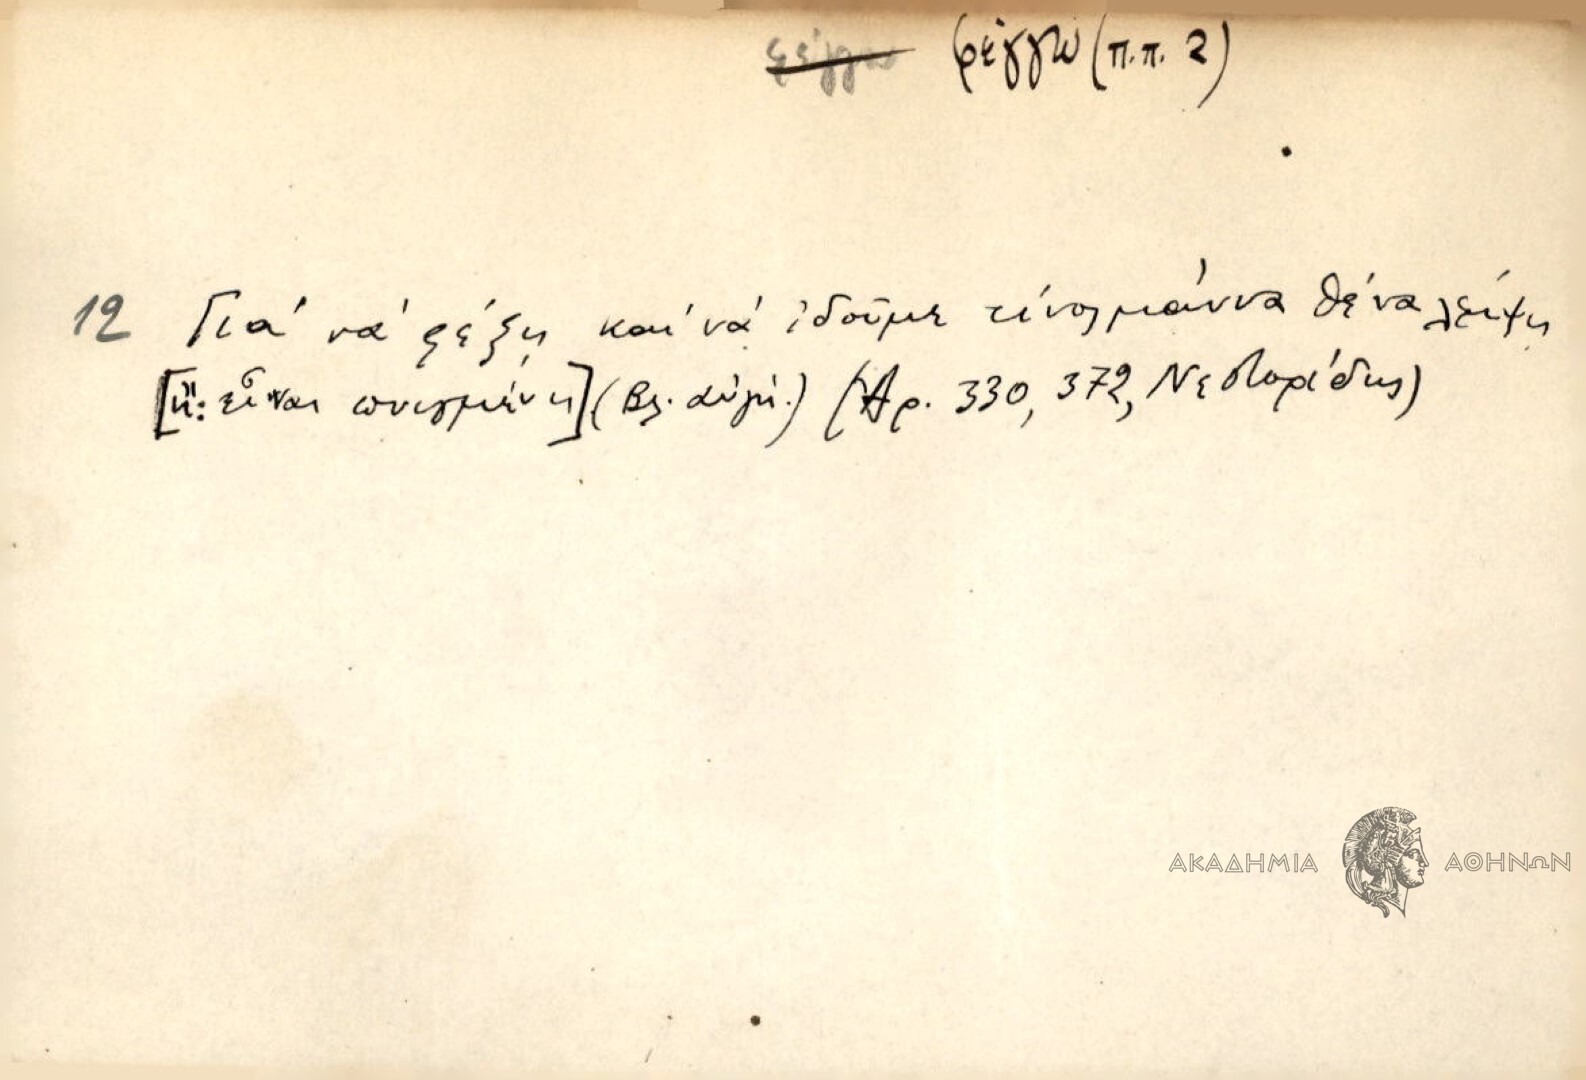 φέγγω φέγγω (π.π. 2)
12 Γιά νά φέξη καί νά ἰδοῦμε τίνος μάννα θέ να λείψη
[ἤ: εἶναι πνιγμένη] (βλ. αὐγή.) (Ἀρ. 330, 372, Νεστορίδης)
ΑΚΑΔΗΜΙΑ ΑΘΗΝΩΝ